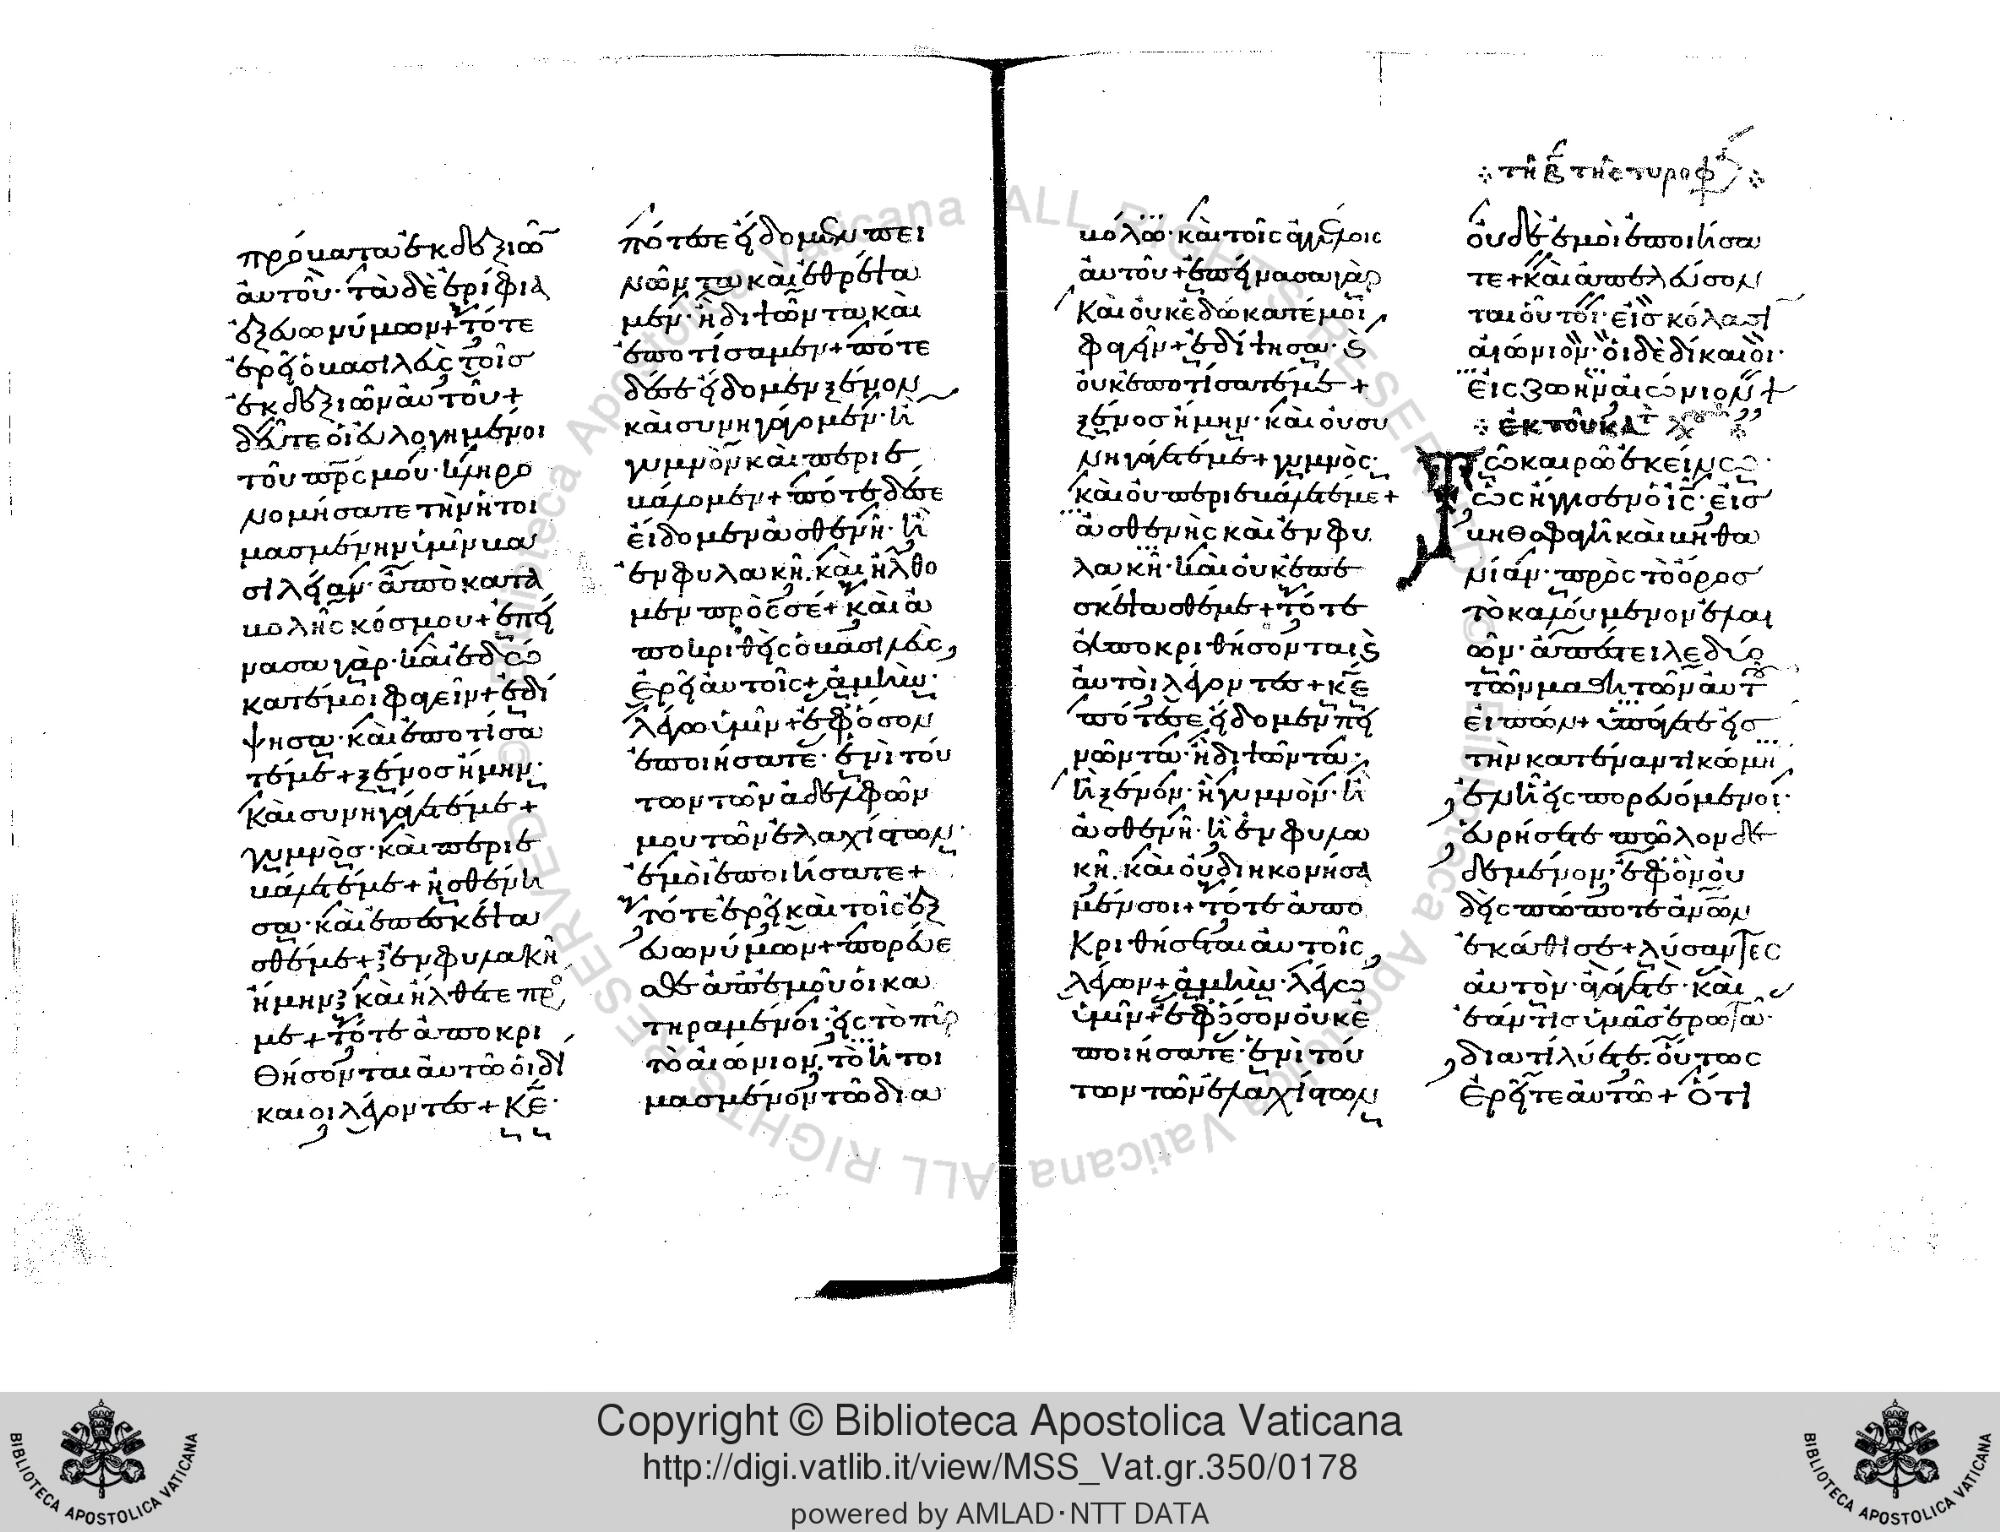 πρόβατα ἐκ δεξιῶ
αὐτοῦ· τὰ δὲ ἐρίφια
ἐξ εὐωνύμων + τότε
ἐρεῖ ὁ βασιλεὺς τοῖσ
ἐκ δεξιῶν αὐτοῦ +
δεῦτε οἱ εὐλογημένοι
τοῦ πρς μου· κληρο
νομήσατε τὴν ἡτοι
μασμένην ὑμῖν βα
σιλείαν· ἀπὸ κατα
βολῆς κόσμου + ἐπεί
νασα γὰρ· καὶ ἐδώ
κατέ μοι φαγεῖν + ἐδί
ψησα· καὶ ἐποτίσα
τέ με + ξένοσ ἤμην·
καὶ συνηγάγετέ με +
γυμνὸσ· καὶ περιε
βάλετέ με + ἠσθένη
σα· καὶ ἐπεσκέψα
σθέ με + ἐν φυλακῆ
ἤμην καὶ ἤλθετε πρ
με + τότε ἀποκρι
θήσονται αὐτῶ οἱ δί
καιοι λέγοντες + κε·
πότε σε εἴδομεν πει
νῶντα καὶ ἐθρέψα
μεν· ἢ διψῶντα καὶ
ἐποτίσαμεν + πότε
δέ σε εἴδομεν ξένον
καὶ συνηγάγομεν· ἢ
γυμνὸν καὶ περιε
βάλομεν + πότε δέ σε
εἴδομεν ἀσθενῆ· ἢ
ἐν φυλακῆ. καὶ ἤλθο
μεν πρὸς σέ + καὶ ἀ
ποκριθεὶς ὁ βασιλεὺς,
ἐρεῖ αὐτοῖς + ἀμὴν·
λέγω ὑμῖν + ἐφ' ὅσον
ἐποιήσατε· ἑνὶ τού
των τῶν ἀδελφῶν
μου τῶν ἐλαχίστων·
ἐμοὶ ἐποιήσατε +
τότε ἐρεῖ καὶ τοῖς ἐξ
εὐωνύμων + πορεύε
σθε ἀπ' ἐμοῦ οἱ κα
τηραμένοι· εἰς τὸ πῦρ
τὸ αἰώνιον, τὸ ἡτοι
μασμένον τῶ δια
βόλω· καὶ τοῖς ἀγγέλοις
αὐτοῦ + ἐπείνασα γὰρ
καὶ οὐκ ἐδώκατέ μοι
φαγεῖν + ἐδίψησα· κ
οὐκ ἐποτίσατέ με +
ξένοσ ἤμην· καὶ οὐ συ
νηγάγετέ με + γυμνὸς·
καὶ οὐ περιεβάλετέ με +
ἀσθενὴς καὶ ἐν φυ
λακῆ· καὶ οὐκ ἐπε
σκέψασθέ με + τότε
ἀποκριθήσονται κ
αὐτοὶ λέγοντες + κε
πότε σε εἴδομεν πει
νῶντα· ἢ διψῶντα·
ἢ ξένον· ἢ γυμνὸν· ἢ
ἀσθενῆ· ἢ ἐν φυλα
κῆ. καὶ οὐ διηκονήσα
μέν σοι + τότε ἀπο
κριθήσεται αὐτοῖς
λέγων + ἀμὴν· λέγω
ὑμῖν + ἐφ' ὅσον οὐκ ἐ
ποιήσατε· ἑνὶ τού
των τῶν ἐλαχίστων
τῆ β τῆς τυροφ
οὐδὲ ἐμοὶ ἐποιήσα
τε + καὶ ἀπελεύσον
ται οὗτοι· εἰσ κόλασι
αἰώνιον· οἱ δὲ δίκαιοι·
εἰς ζωὴν αἰώνιον +
ἐκ τοῦ κατ
Τῶ καιρῶ ἐκείνω·
ὡς ἤγγισεν ὁ ις· εἰσ
βηθσφαγὴ καὶ βηθα
νίαν· πρὸς τὸ ὄροσ
τὸ καλούμενον ἐλαι
ῶν· ἀπέστειλε δύο
τῶν μαθητῶν αὐτ
εἰπών + ὑπάγετε εἰσ
τὴν κατέναντι κώμη
ἐν ἧ εἰσπορευόμενοι·
εὑρήσετε πῶλον δε
δεμένον· ἐφ' ὃν οὐ
δεὶς πώποτε ἀνων
ἐκάθισε + λύσαντες
αὐτὸν ἀγάγετε· καὶ
ἐάν τισ ὑμᾶσ ἐρωτᾶ·
διατί λύετε· οὕτως
ἐρεῖτε αὐτῶ + ὅτι
Copyright © Biblioteca Apostolica Vaticana
http://digi.vatlib.it/view/MSS_Vat.gr.350/0178
powered by AMLAD·NTT DATA
BIBLIOTECA APOSTOLICA VATICANA
BIBLIOTECA APOSTOLICA VATICANA
© Biblioteca Apostolica Vaticana ALL RIGHTS RESERVED © Biblioteca Apostolica Vaticana ALL RIGHTS RESERVED